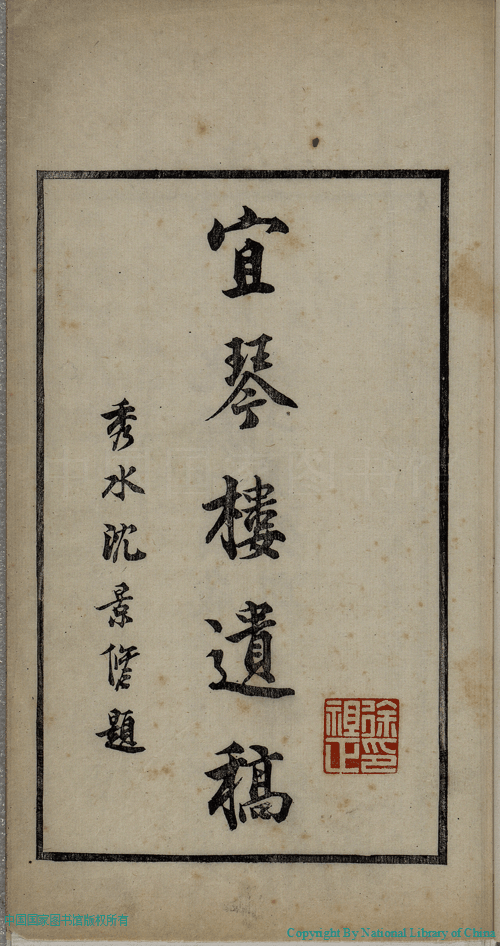 宜琴樓遺稿
秀水沈景脩題
徐印祖正
中国国家图书馆版权所有
Copyright By National Library of China